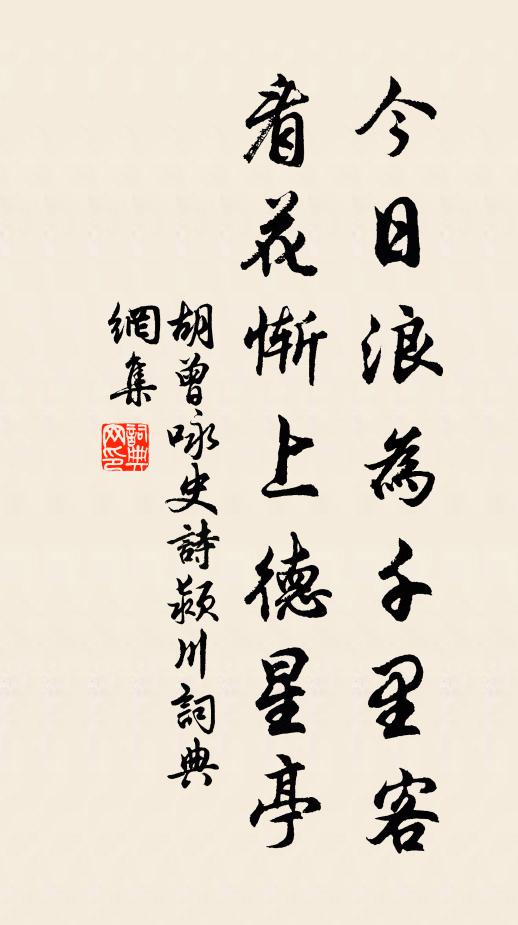 今日浪為千里客
看花慚上德星亭
胡曾咏史詩潁川詞典
網集
詞典
网印